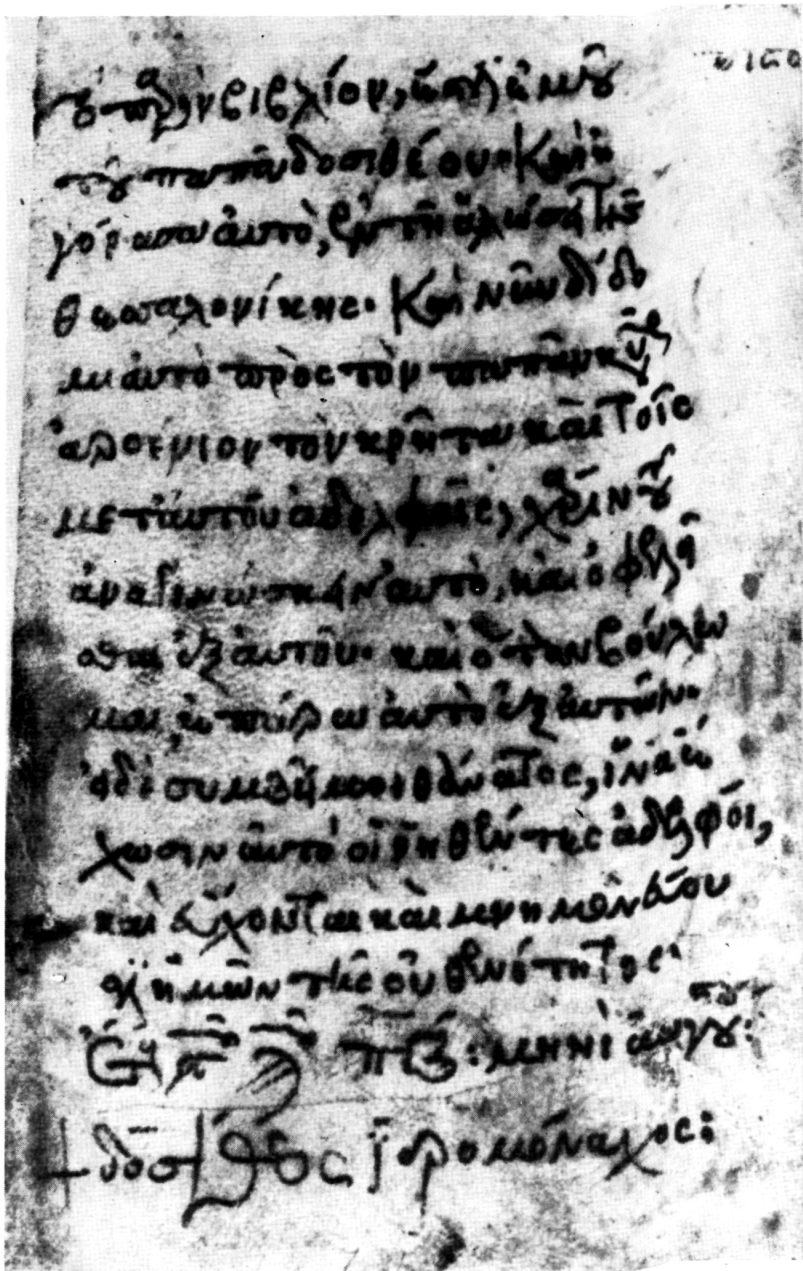 Τὸ παρὸν βιβλίον, ὑπῆρχε ἐμοῦ
τοῦ παπᾶ δοσιθέου. Καὶ ἠ
γόρασα αὐτὸ, ἐν τῇ ἁλώσει τῆς
θεσσαλονίκης. Καὶ νῦν δίδο
μι αὐτὸ πρὸς τὸν παπᾶν
τὸν κρῆτα καὶ τοῖς
μετ' αὐτοῦ ἀδελφοῖς, χάριν τοῦ
ἀναγινώσκειν αὐτὸ, καὶ ὀφελεῖ
σθαι ἐξ αὐτοῦ. καὶ ὅταν βούλω
μαι, ἐπαίρω αὐτὸ ἐξ αὐτῶν.
εἰ δὲ συμβῇ μοι θάνατος, ἵνα ἔ
χωσιν αὐτὸ οἱ ῥηθέντες ἀδελφοί,
καὶ εὔχονται καὶ μνημονεύου
σι ἡμῶν τῆς οὐθενότητος.
μηνὶ αὐγού:
+ δοσίθεος ἱερομόναχος: